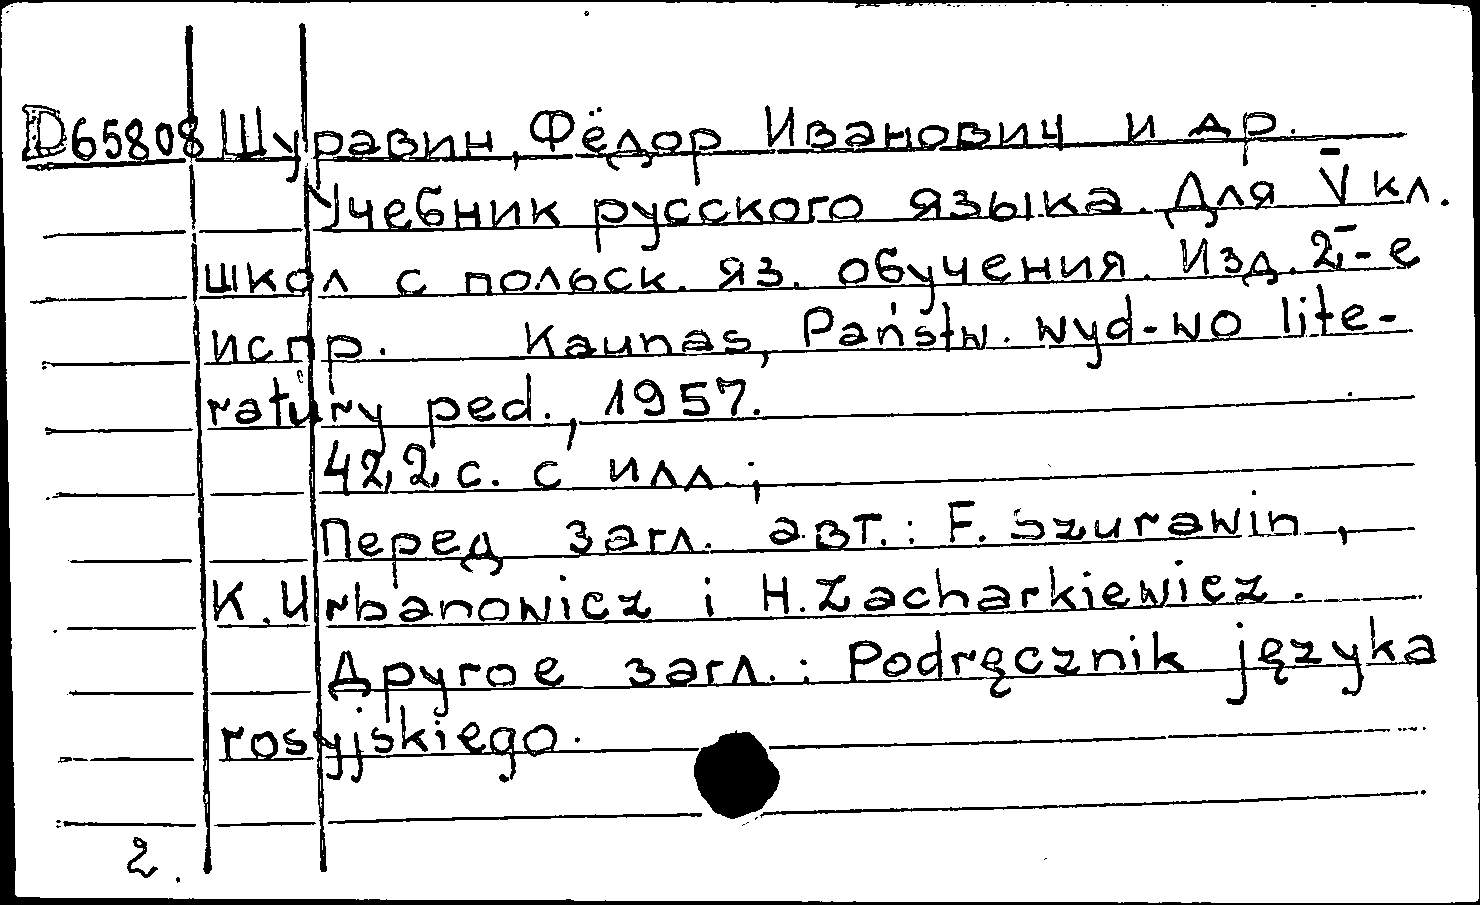 D65808 Шуравин, Фёдор Иванович и др.
Учебник русского языка. Для V кл.
школ с польск. яз. обучения. Изд. 2-е
испр. Kaunas, Państw. wyd-wo lite-
ratury ped., 1957.
422 с. с илл.;
Перед загл. авт.: F. Szurawin,
K. Urbanowicz i H. Zacharkiewicz.
Другое загл.: Podręcznik języka
rosyjskiego.
2.